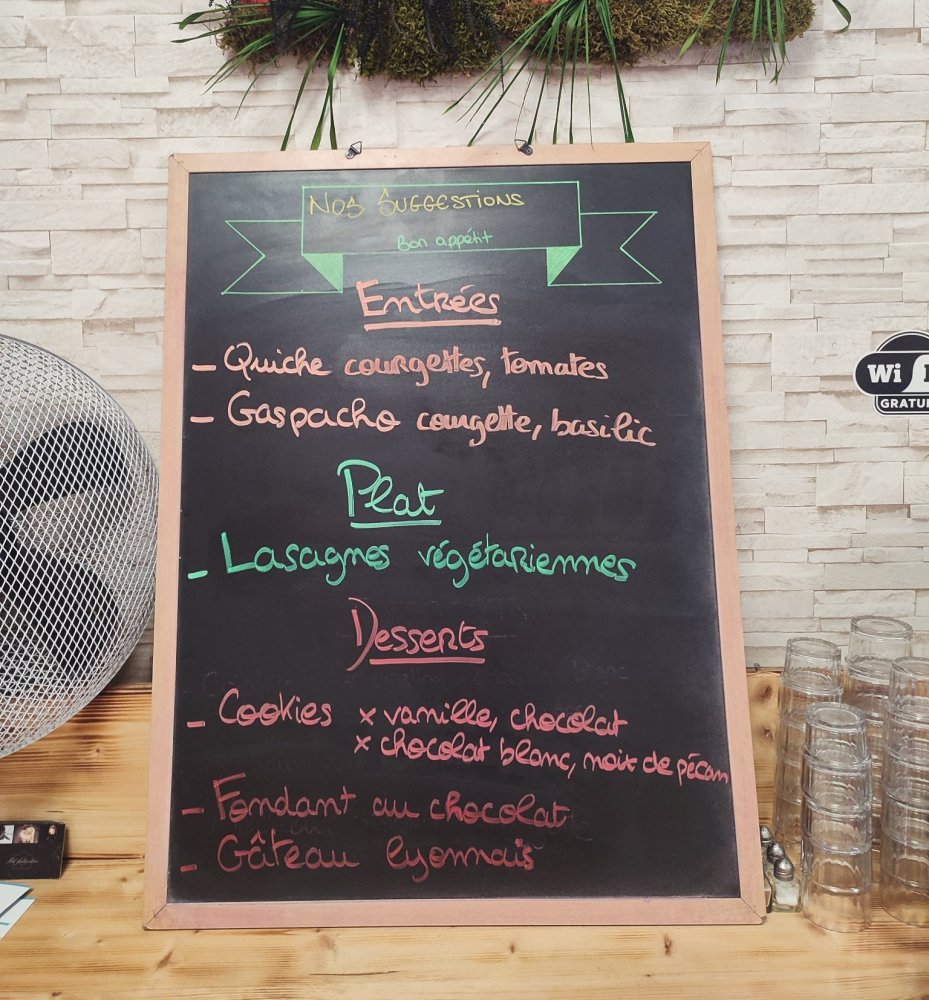 Nos Suggestions
Bon appétit
Entrées
- Quiche courgettes, tomates
- Gaspacho courgette, basilic
Plat
- Lasagnes végétariennes
Desserts
- Cookies x vanille, chocolat
x chocolat blanc, noix de pécan
- Fondant au chocolat
- Gâteau lyonnais
Wi
GRATU